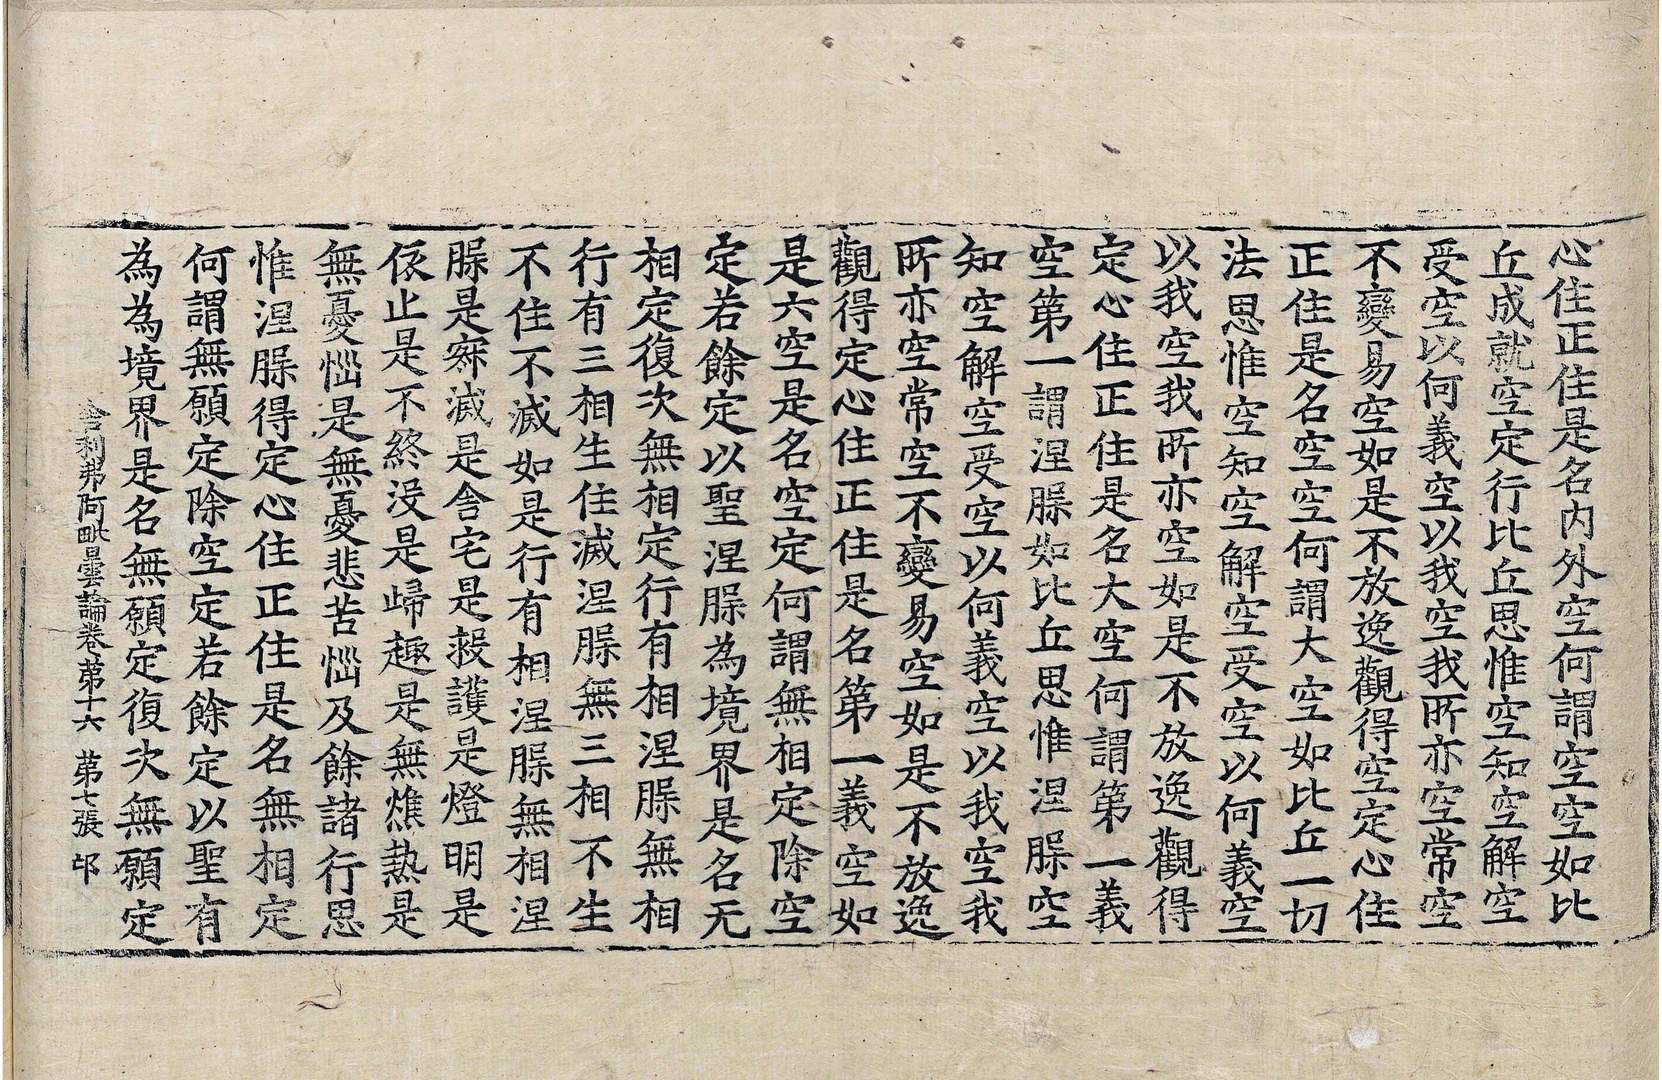 心住正住是名内外空何謂空空如比
丘成就空定行比丘思惟空知空解空
受空以何義空以我空我所亦空常空
不變易空如是不放逸觀得空定心住
正住是名空空何謂大空如比丘一切
法思惟空知空解空受空以何義空
以我空我所亦空如是不放逸觀得
定心住正住是名大空何謂第一義
空第一謂涅槃如比丘思惟涅槃空
知空解空受空以何義空以我空我
所亦空常空不變易空如是不放逸
觀得定心住正住是名第一義空如
是六空是名空定何謂無相定除空
定若餘定以聖涅槃為境界是名无
相定復次無相定行有相涅槃無相
行有三相生住滅涅槃無三相不生
不住不滅如是行有相涅槃無相涅
槃是寂滅是舎宅是救護是燈明是
依止是不終没是歸趣是無燋熱是
無憂惱是無憂悲苦惱及餘諸行思
惟涅槃得定心住正住是名無相定
何謂無願定除空定若餘定以聖有
為為境界是名無願定復次無願定
舎利弗阿毗曇論卷第十六 第七張